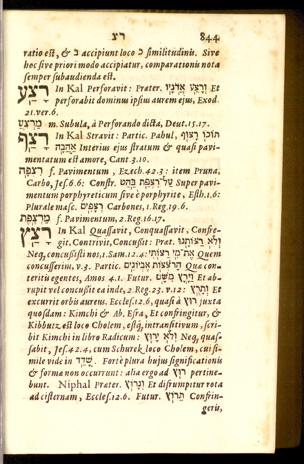 רצ 844.
ratio est, & ב accipiunt loco כ similitudinis. Sive
hoc sive priori modo accipiatur, comparationis nota
semper subaudienda est.
רָצַע In Kal Perforavit: Præter. וְרָצַע אֲדֹנָיו Et
perforabit dominus ipsius aurem ejus, Exod.
21. ver. 6.
מַרְצֵעַ m. Subula, à Perforando dicta, Deut. 15. 17.
רָצַף In Kal Stravit: Partic. Pahul, תּוֹכוֹ רָצוּף
אַהֲבָה Interius ejus stratum & quasi pavi-
mentatum est amore, Cant. 3. 10.
רִצְפָה f. Pavimentum, Ezech. 42. 3: item Pruna,
Carbo, Jes. 6. 6: Constr. עַל־רִצְפַת בַּהַט Super pavi-
mentum porphyreticum sive è porphyrite, Esth. 1. 6:
Plurale masc. רְצָפִים Carbones, 1. Reg. 19. 6.
מַרְצֶפֶת f. Pavimentum, 2. Reg. 16. 17.
רָצַץ In Kal Quassavit, Conquassavit, Confre-
git, Contrivit, Concussit: Præt. וְלֹא רַצּוֹתָנוּ
Neq; concussisti nos, 1. Sam. 12. 4: אֶת־מִי רַצּוֹתִי Quem
concusserim, v. 3. Partic. הָרֹצְצוֹת אֶבְיוֹנִים Quæ con-
teritis egentes, Amos 4. 1. Futur. וַיָּרֶץ מִשָּׁם Et ab-
rupit vel concussit ea inde, 2. Reg. 23. v. 12: וְתָרֻץ Et
excurrit orbis aureus. Eccles. 12. 6, quasi à רוּץ juxta
quosdam: Kimchi & Ab. Esra, Et confringitur, &
Kibbutz est loco Cholem, estq; intransitivum, scri-
bit Kimchi in libro Radicum: וְלֹא יָרוּץ Neq; quas-
sabit, Jes. 42. 4, cum Schurek loco Cholem, cui si-
mile vide in שָׁדַד. Fortè plura hujus significationis
& formæ non occurrunt: alia ergo ad רוּץ pertine-
bunt. Niphal Præter. וְנָרֹץ Et disrumpitur rota
ad cisternam, Eccles. 12. 6. Futur. תֵּרוֹץ Confrin-
geris,